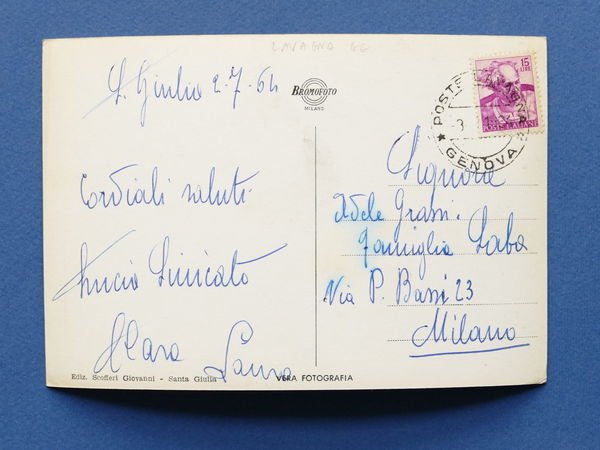 LAVAGNA GE
S. Giulia 2.7.64
BROMOFOTO
MILANO
15
LIRE
POSTE ITALIANE
POSTE LAVAGNA
3
GENOVA
Cordiali saluti
Lucia
Clara
Laura
Signora
Adele Grassi
famiglia Saba
Via P. Bassi 23
Milano
Ediz. Scofferi Giovanni - Santa Giulia
VERA FOTOGRAFIA